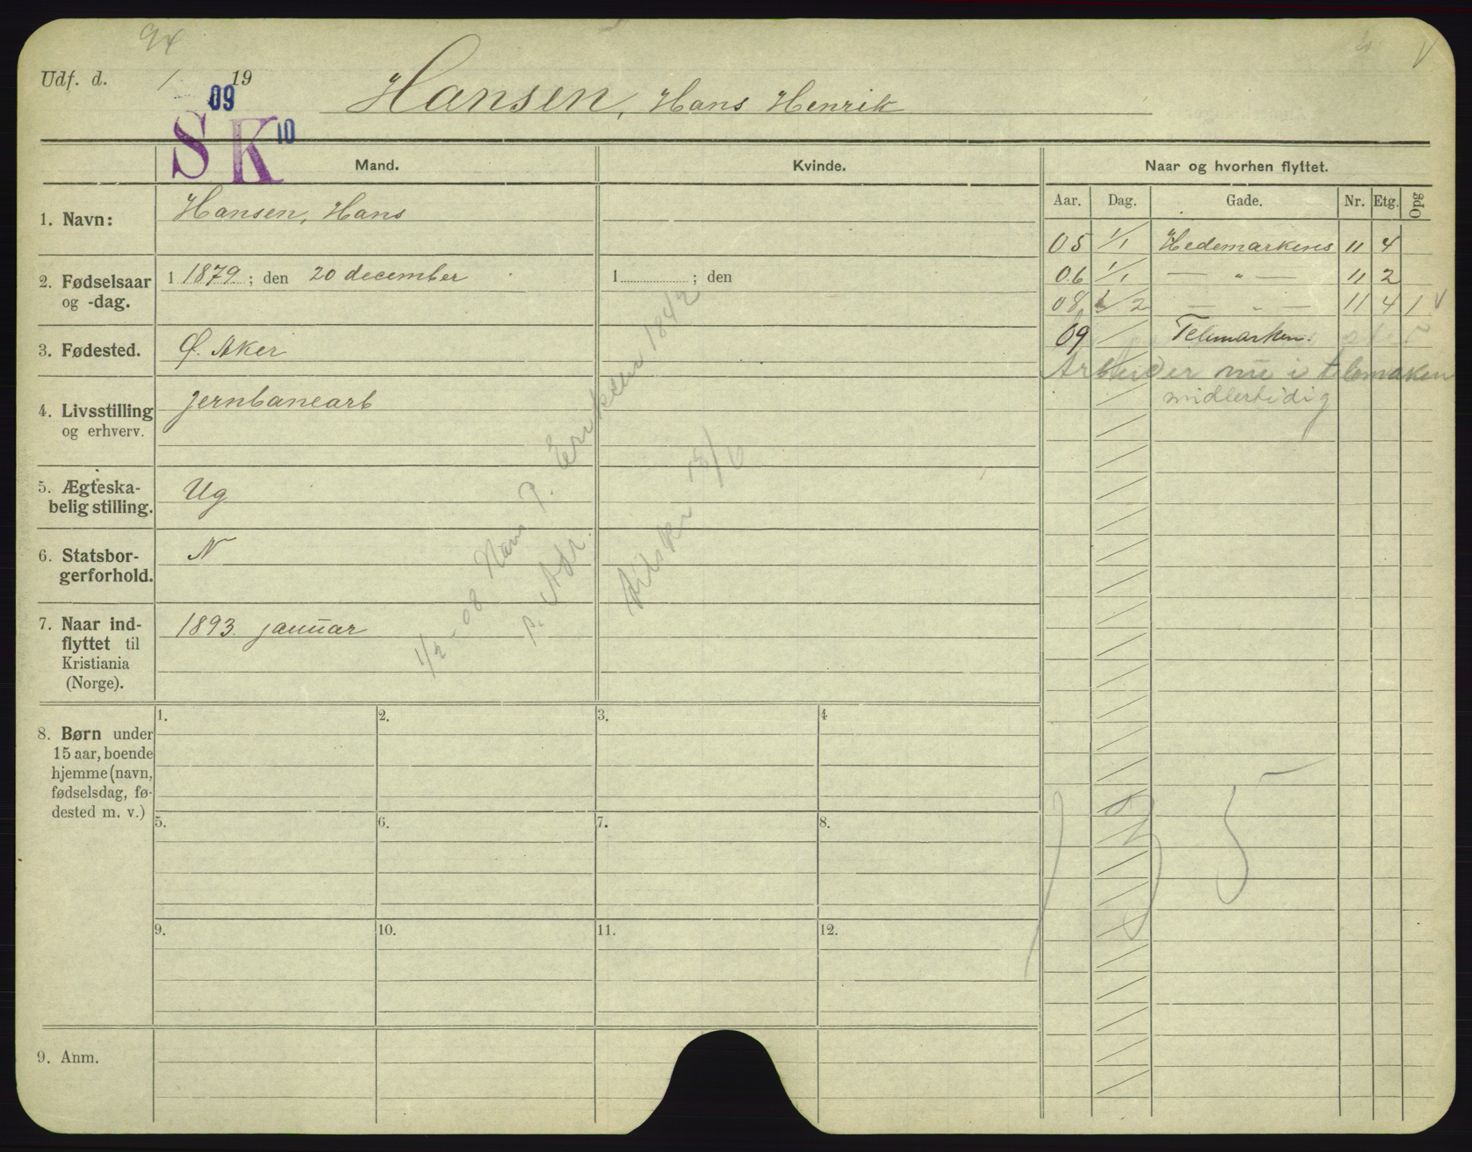 94
Udf. d. / 19
Hansen, Hans Henrik
09
S K 10
Mand.
Kvinde.
Naar og hvorhen flyttet.
Aar. Dag. Gade. Nr. Etg. Opg
1. Navn: Hansen, Hans
2. Fødselsaar og -dag. 1 1879; den 20 december
1 ; den
3. Fødested. Ø. Aker
4. Livsstilling og erhverv. Jernbanearb
5. Ægteskabelig stilling. Ug
6. Statsborgerforhold. N
7. Naar indflyttet til Kristiania (Norge). 1893 januar
05 1/1 Hedemarkens 11 4
06 1/1 — " — 11 2
08 1/2 — " — 11 4 1 V
09 Telemarken.
Arbeider nu i telemaken
midlertidig
1/2-08 Hans P. Eriksen 184/2
P. Adr.
15/6
8. Børn under
15 aar, boende
hjemme (navn,
fødselsdag, fø-
dested m. v.)
1. 2. 3. 4
5. 6. 7. 8.
9. 10. 11. 12.
9. Anm.